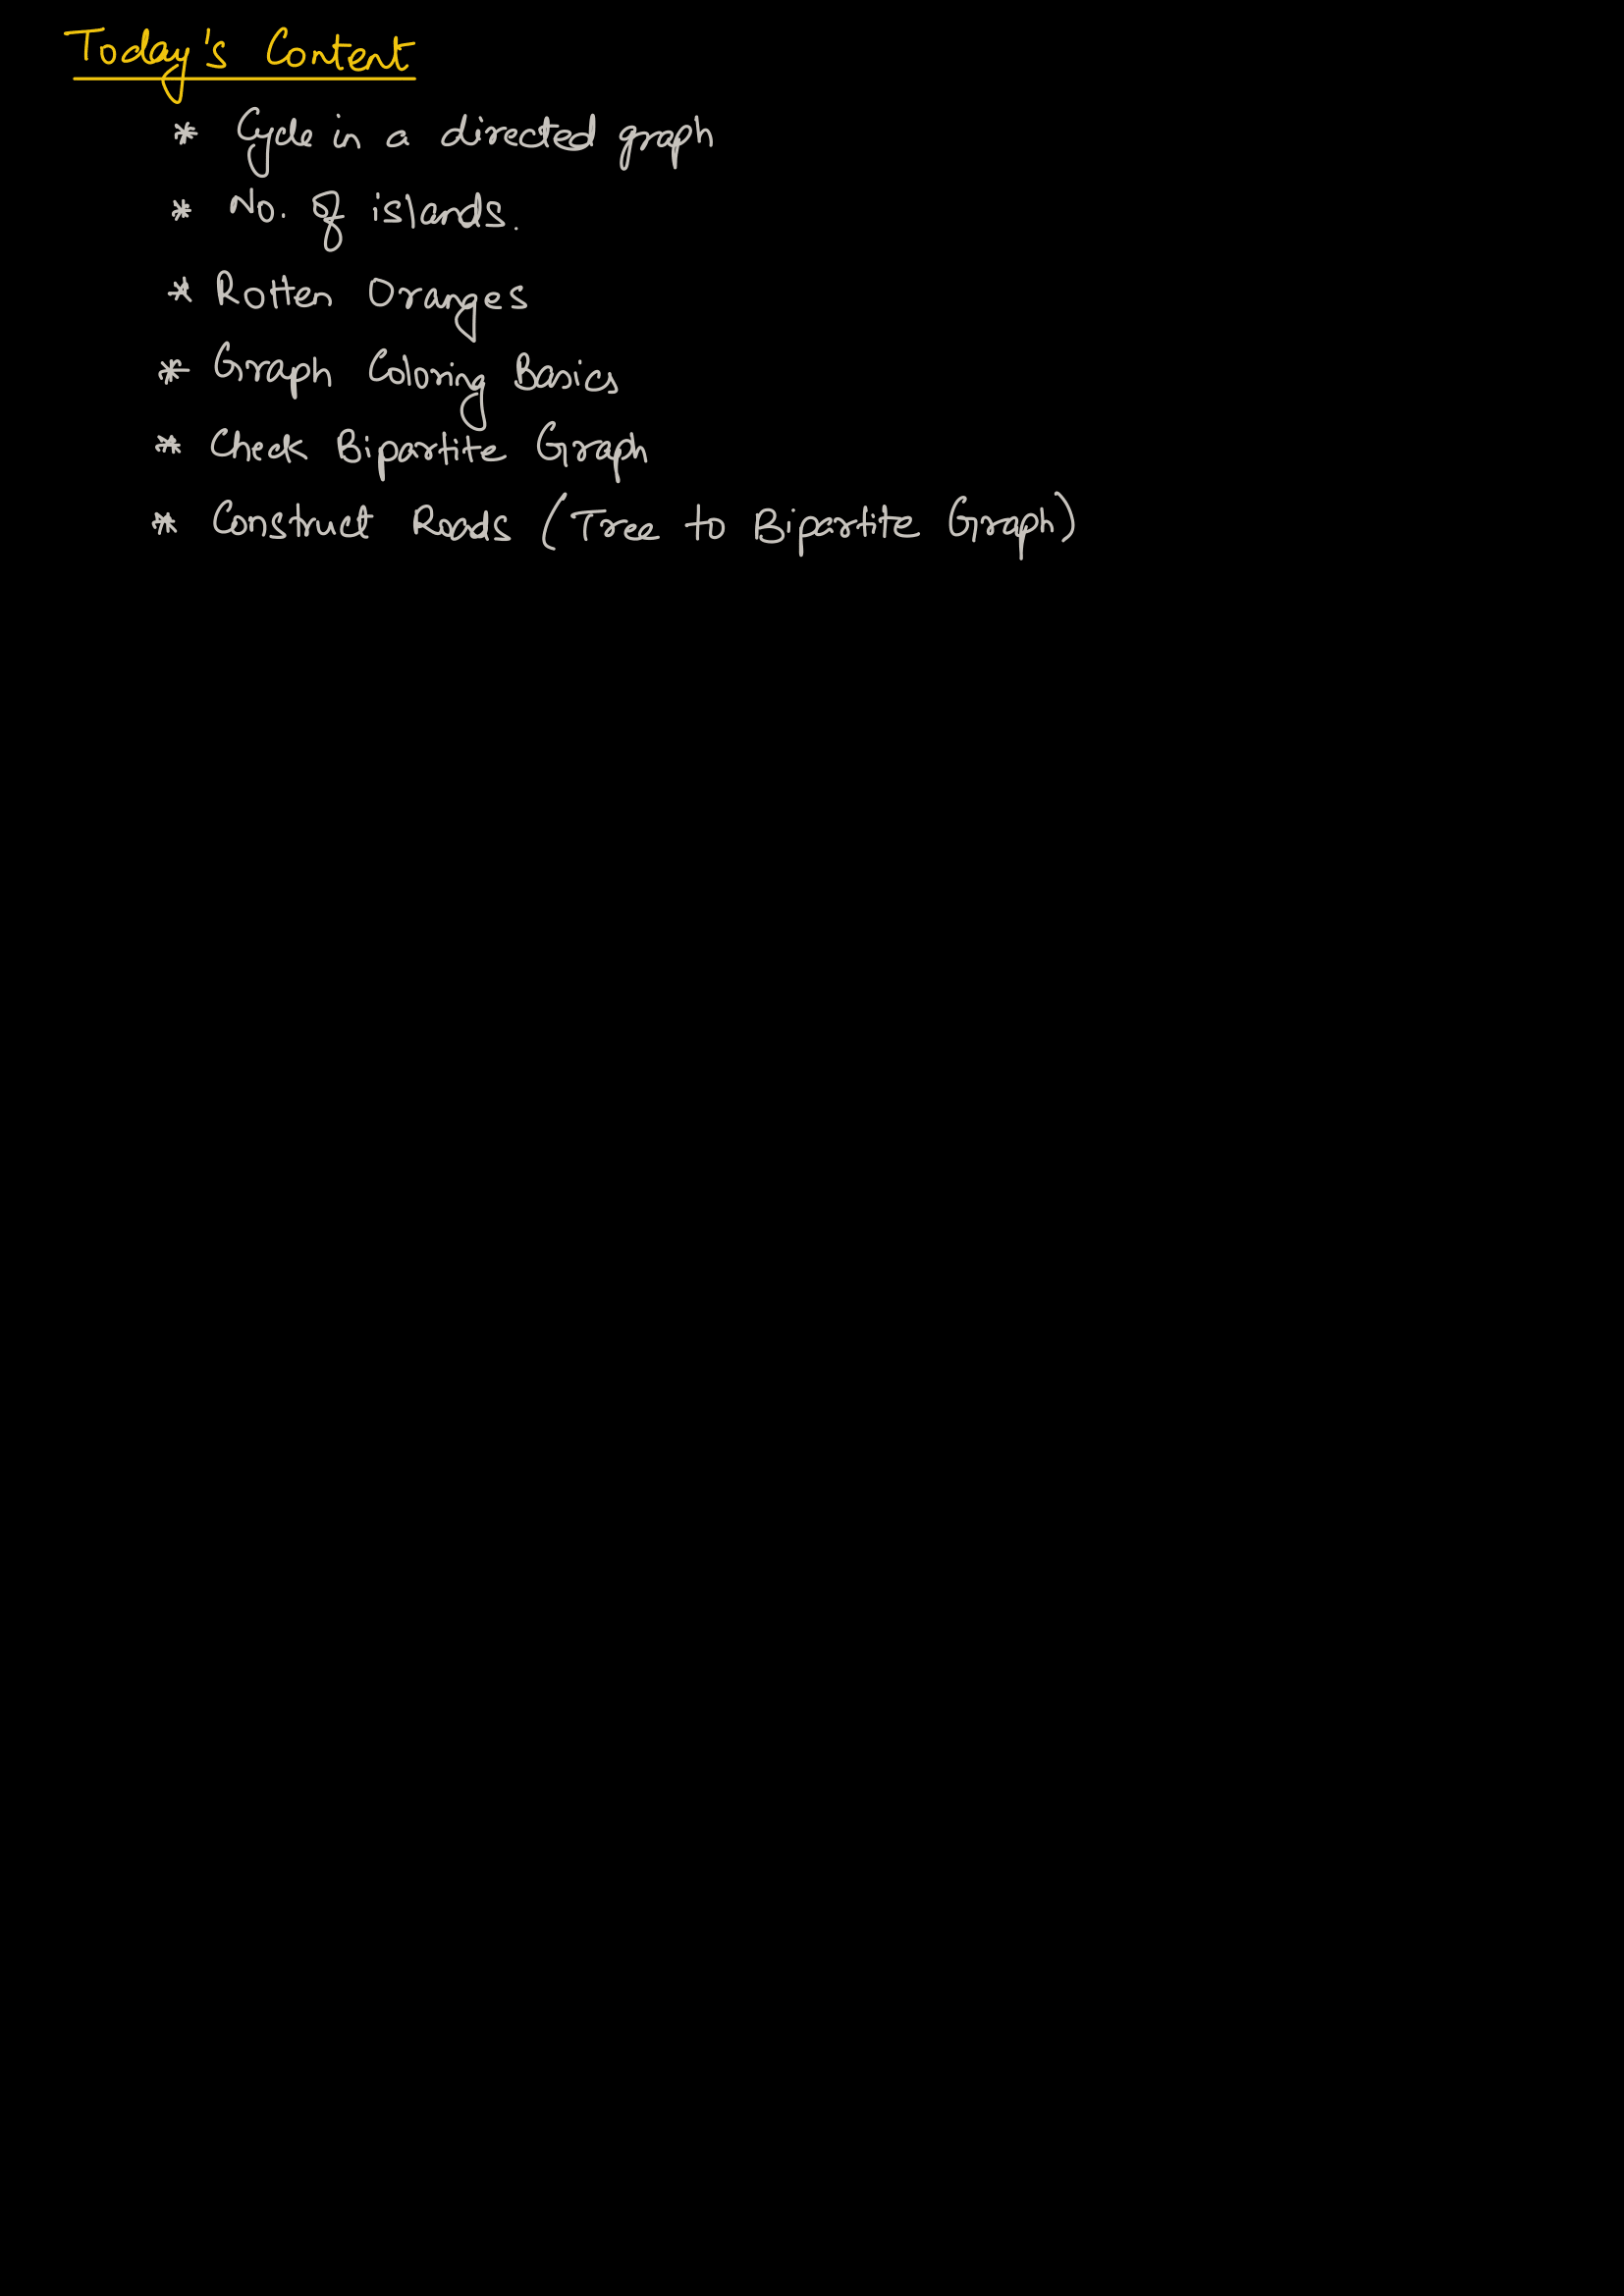 Today's Content
* Cycle in a directed graph
* No. of islands.
* Rotten Oranges
* Graph Coloring Basics
* Check Bipartite Graph
* Construct Roads (Tree to Bipartite Graph)